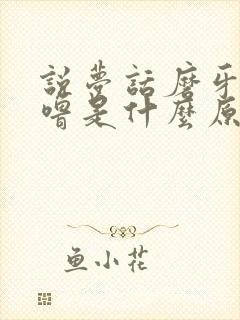 說夢話磨牙
嘈是什麼原
鱼小花